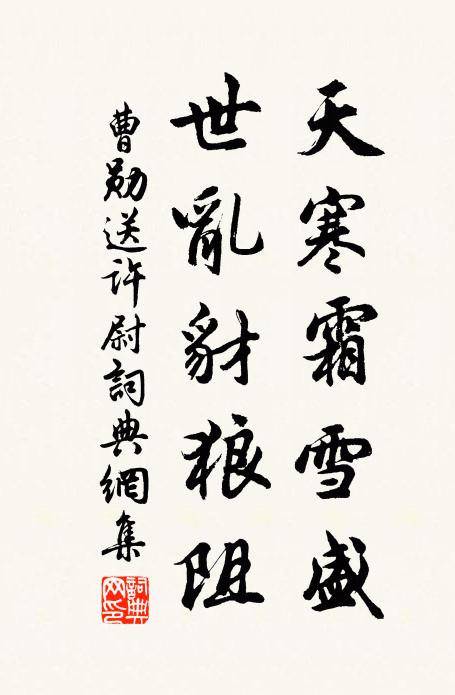 天寒霜雪盛
世亂豺狼阻
曹勛送许尉詞典網集
詞典网印